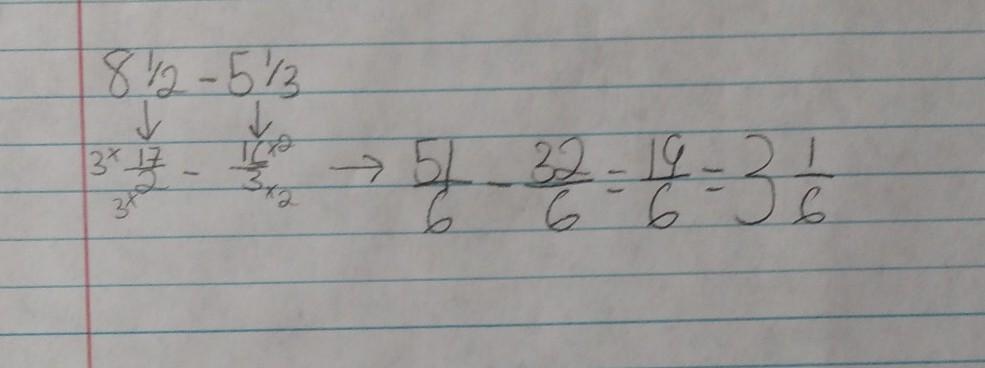 8 1/2 - 5 1/3
↓ ↓
3× 17/2 3× - 16/3 ×2 ×2 → 51/6 - 32/6 = 19/6 = 3 1/6